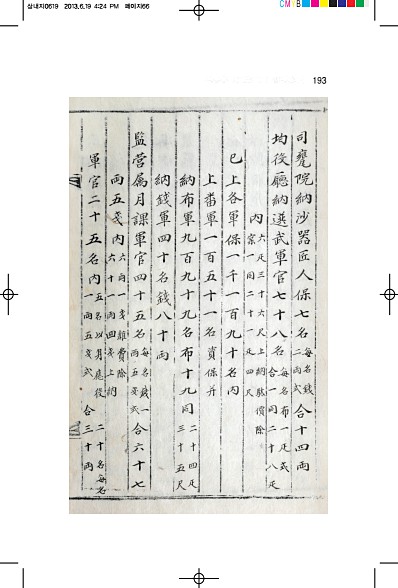 삼내지0619 2013.6.19 4:24 PM 페이지66
CMYB
193
司甕院納沙器匠人保七名每名錢二兩式合十四兩
均役廳納選武軍官七十八名每名布一疋式合一同二十八疋
內六疋三十六尺上納駄價除案一同二十一疋四尺
已上各軍保一千一百九十名內
上番軍一百五十一名資保幷
納布軍九百九十九名布十九同二十四疋三十五尺
納錢軍四十名錢八十兩
監營屬月課軍官四十五名每名錢一兩五戔式合六十七
兩五戔內六兩一戔雜費除六十一兩四戔上納
軍官二十五名內五名以身應役二十名每名一兩五戔式合三十兩